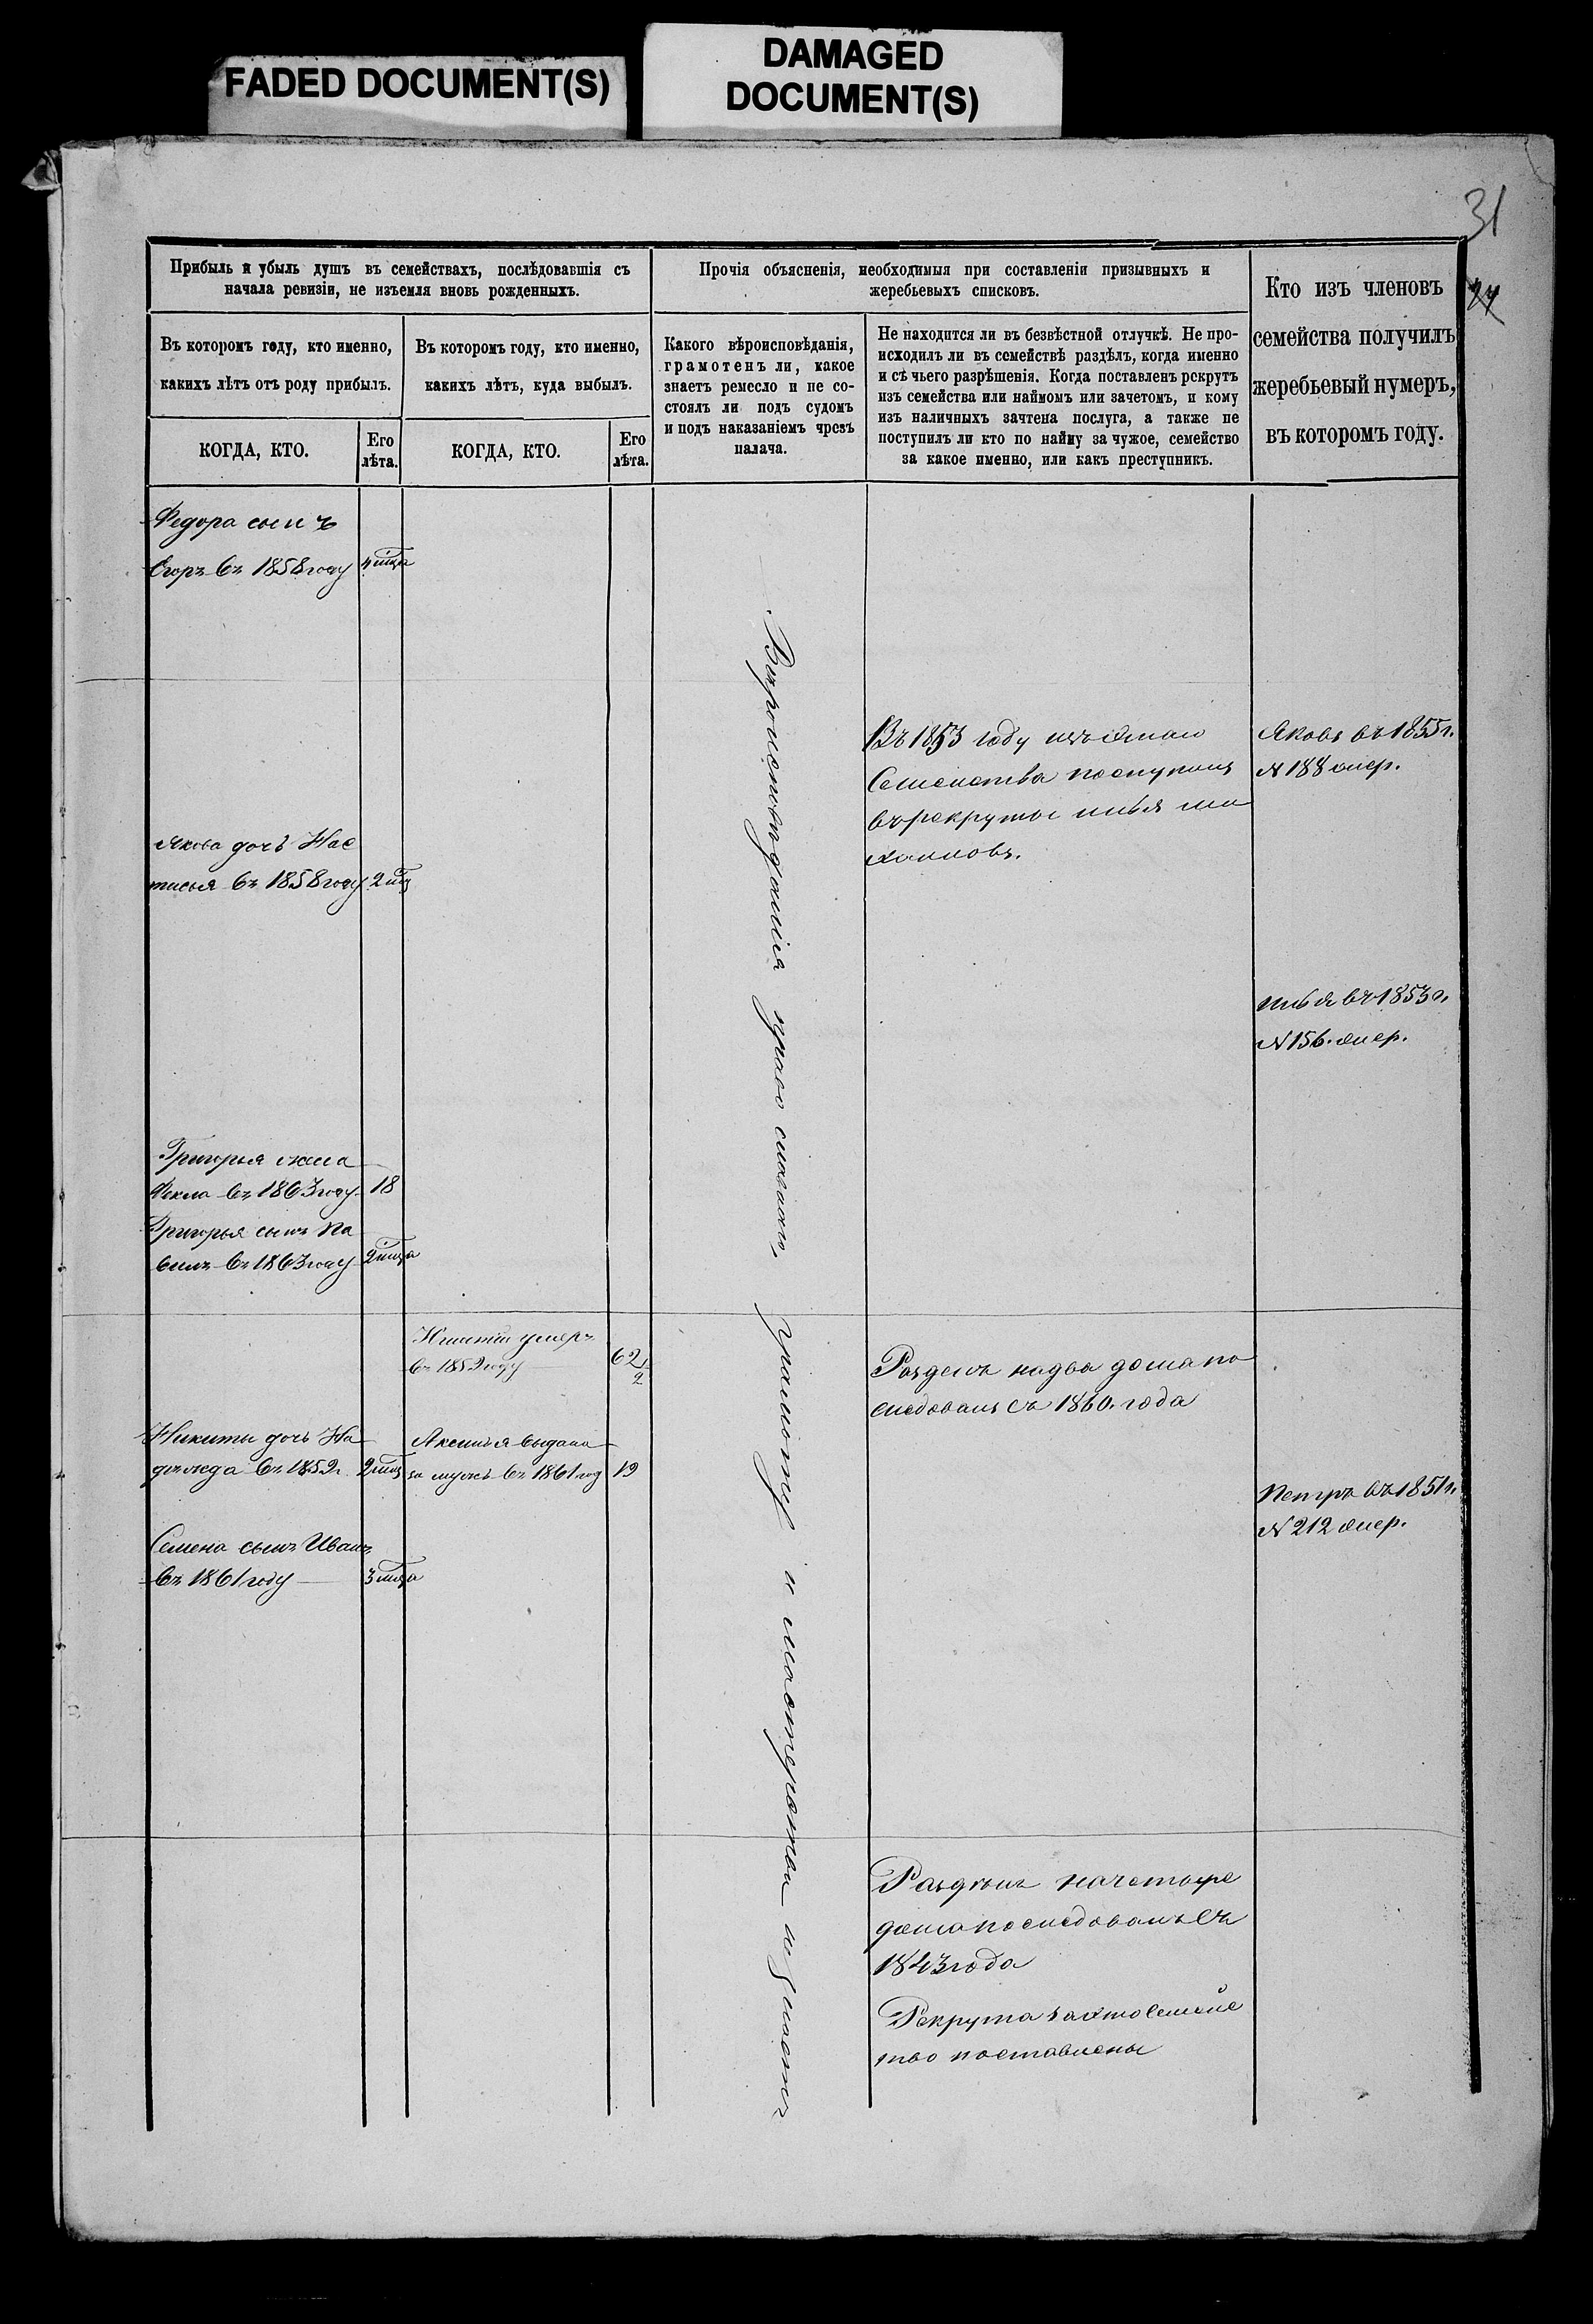 FADED DOCUMENT(S)
DAMAGED
DOCUMENT(S)
31
Прибыль и убыль душъ въ семействахъ, послѣдовавшія съ
начала ревизіи, не изъемля вновь рожденныхъ.
Прочія объясненія, необходимыя при составленіи призывныхъ и
жеребьевыхъ списковъ.
Кто изъ членовъ
семейства получилъ
жеребьевый нумеръ,
въ которомъ году.
Въ которомъ году, кто именно,
какихъ лѣтъ отъ роду прибылъ.
Въ которомъ году, кто именно,
какихъ лѣтъ, куда выбылъ.
Какого вѣроисповѣданія,
грамотенъ ли, какое
знаетъ ремесло и не со-
стоялъ ли подъ судомъ
и подъ наказаніемъ чрезъ
палача.
Не находится ли въ безвѣстной отлучкѣ. Не про-
исходилъ ли въ семействѣ раздѣлъ, когда именно
и съ чьего разрѣшенія. Когда поставленъ рекрутъ
изъ семейства или наймомъ или зачетомъ, и кому
изъ наличныхъ зачтена послуга, а также не
поступилъ ли кто по найму за чужое, семейство
за какое именно, или какъ преступникъ.
КОГДА, КТО.
Его
лѣта.
КОГДА, КТО.
Его
лѣта.
Федора сынъ
Егоръ въ 1858 году
Вѣроисповѣданія православнаго, грамоту и мастерства не знаетъ
Въ 1853 году изъ этаго
Семейства поступилъ
въ рекруты илья ми
хаиловъ.
Яковъ въ 1855 г.
N 188 жер.
Якова дочь Нас
тасья въ 1858 году
илья въ 1853 г.
N 156. жер.
Григорья жена
Фекла въ 1863 году 18
Григорья сынъ Па
велъ въ 1863 году
умеръ
въ 1852 году
62 1/2
Разделъ надва дома по
следовалъ съ 1860. года
Никиты дочь На
дежда въ 1852 г.
Аксинья выдана
за мужъ въ 1861 год 19
Петръ въ 1851 г.
N 212 жер.
Семена сынъ Иванъ
въ 1861 году
Раздѣлъ начетыре
дома последовалъ съ
1843 года
Рекрута за это семейс
тво поставлены